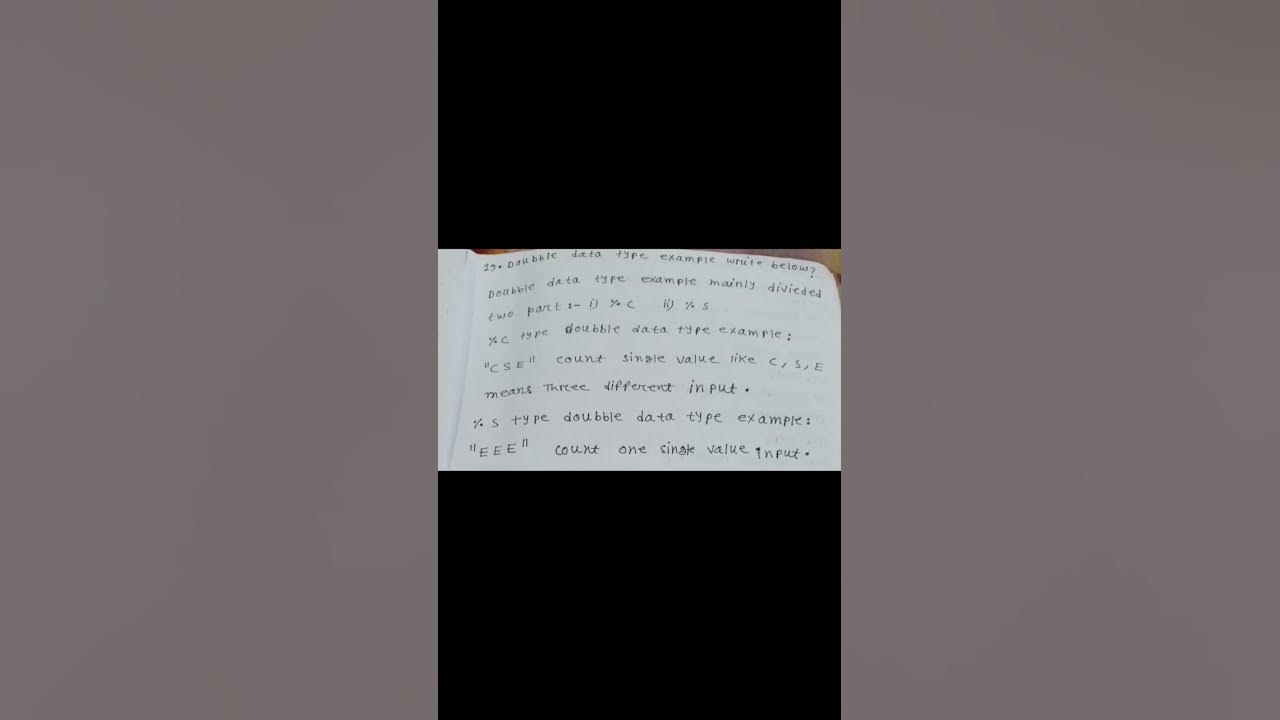 19. Doubble data type example write below?
Doubble data type example mainly divieded
two part :- i) %c ii) %s
%c type doubble data type example:
"CSE" count single value like C, S, E
means three different input.
%s type doubble data type example:
"EEE" count one single value input.